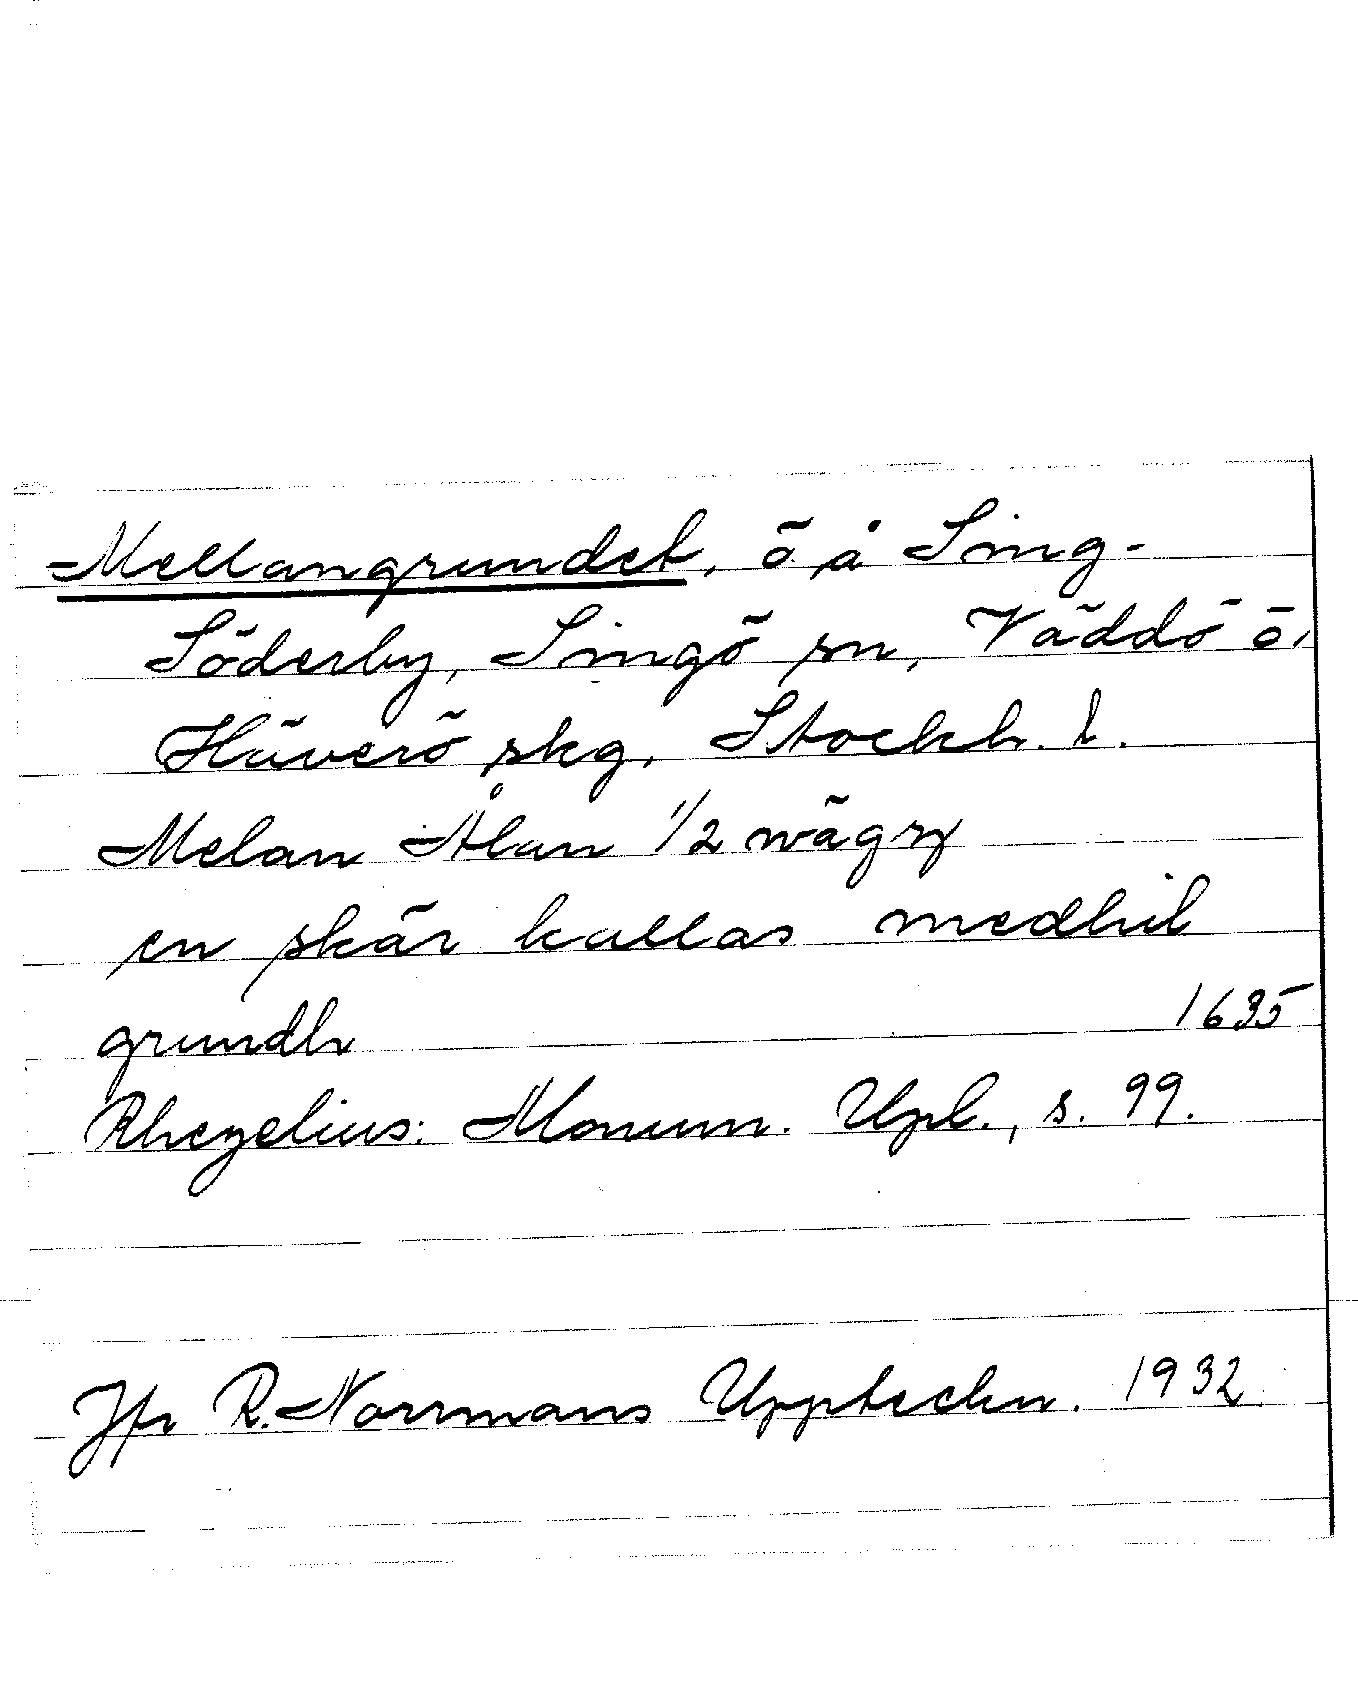 Mellangrundet, ö å Sing-
Söderby, Singö sn, Väddö o.
Häverö skg, Stockh. l.
Melan Ålan 1/2 wägz
en skär kallas medhil
grundh 1635
Rhezelius: Monum. Upl., s. 99.
Jfr R. Norrmans Uppteckn. 1932